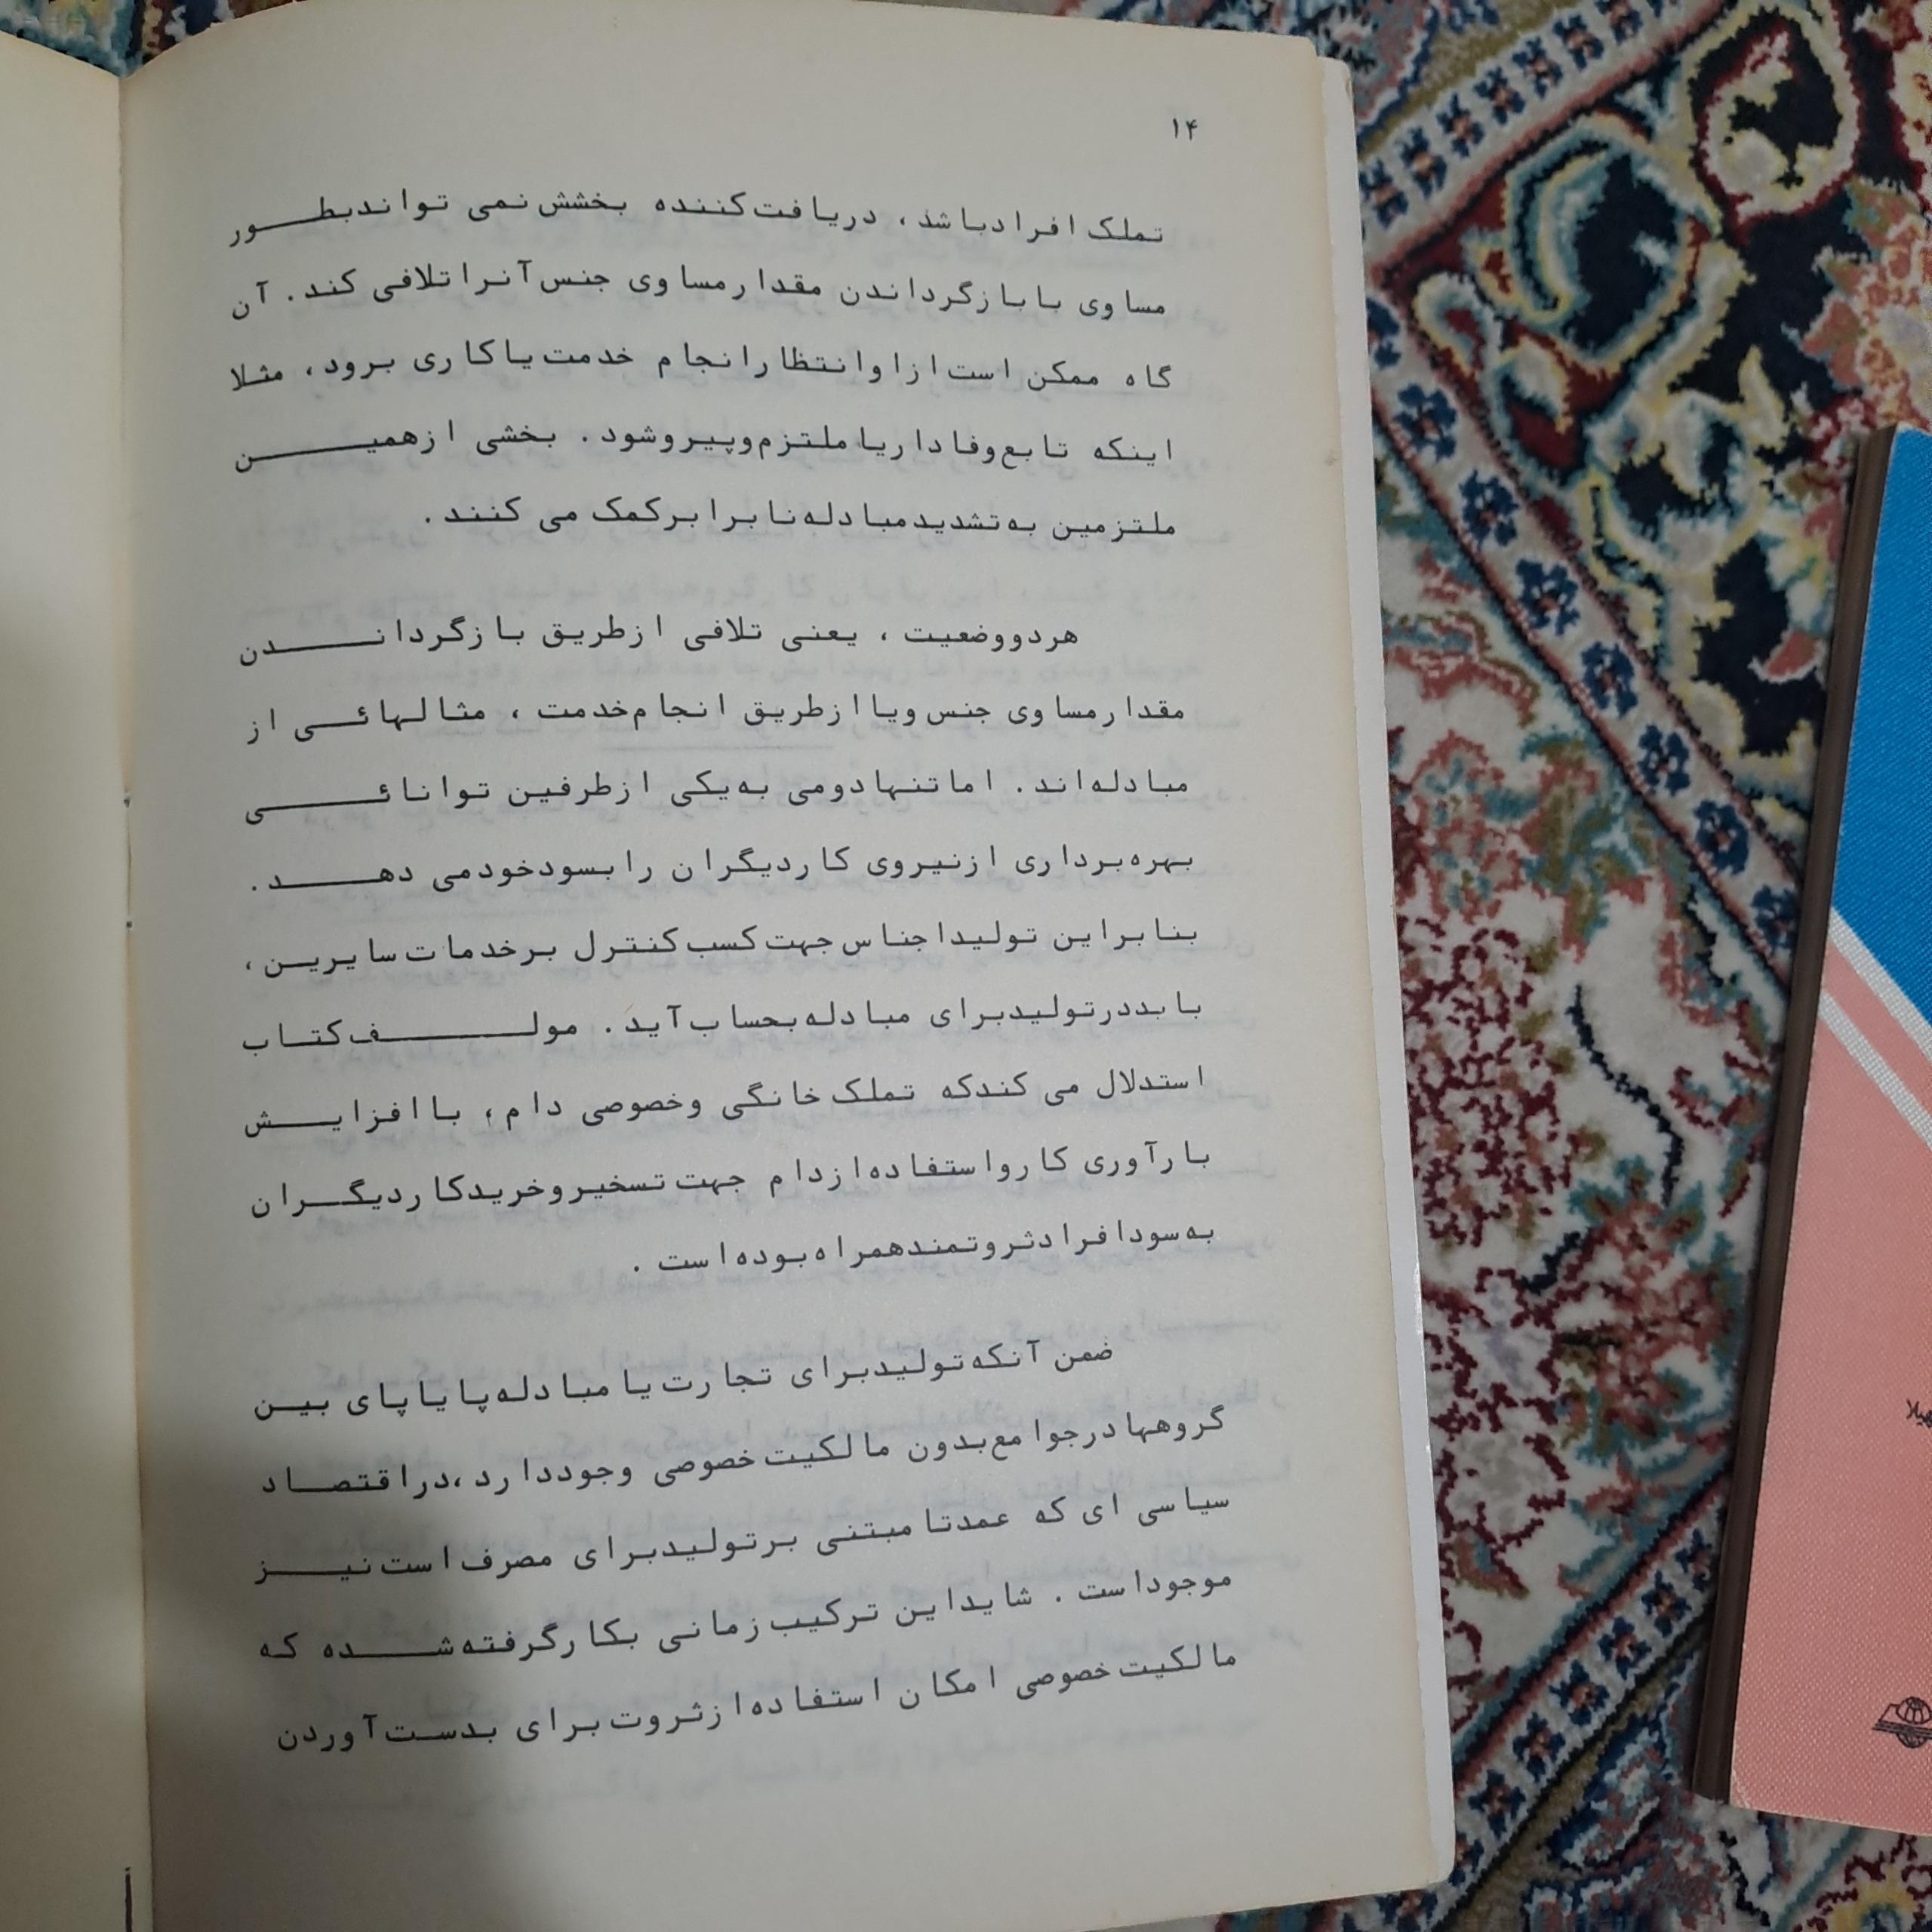 ۱۴
تملک افرادباشد، دریافت‌کننده بخشش نمی تواندبطور
مساوی بابازگرداندن مقدارمساوی جنس آنراتلافی کند. آن
گاه ممکن است ازاوانتظارانجام خدمت یاکاری برود، مثلا
اینکه تابع‌وفاداریاملتزم‌وپیروشود. بخشی ازهمین
ملتزمین به‌تشدیدمبادله‌نابرابرکمک می کنند.
هردووضعیت، یعنی تلافی ازطریق بازگرداندن
مقدارمساوی جنس ویاازطریق انجام‌خدمت، مثالهائی از
مبادله‌اند. اماتنهادومی به‌یکی ازطرفین توانائی
بهره‌برداری ازنیروی کاردیگران رابسودخودمی دهد.
بنابراین تولیداجناس جهت‌کسب‌کنترل برخدمات‌سایرین،
بایددرتولیدبرای مبادله‌بحساب‌آید. مولف‌کتاب
استدلال می کندکه تملک‌خانگی وخصوصی دام، باافزایش
بارآوری کارواستفاده‌ازدام جهت‌تسخیروخریدکاردیگران
به‌سودافرادثروتمندهمراه‌بوده‌است.
ضمن آنکه‌تولیدبرای تجارت‌یامبادله‌پایاپای بین
گروههادرجوامع‌بدون مالکیت‌خصوصی وجوددارد،دراقتصاد
سیاسی ای که عمدتامبتنی برتولیدبرای مصرف‌است‌نیز
موجوداست. شایداین ترکیب‌زمانی بکارگرفته‌شده که
مالکیت‌خصوصی امکان استفاده‌ازثروت‌برای بدست‌آوردن